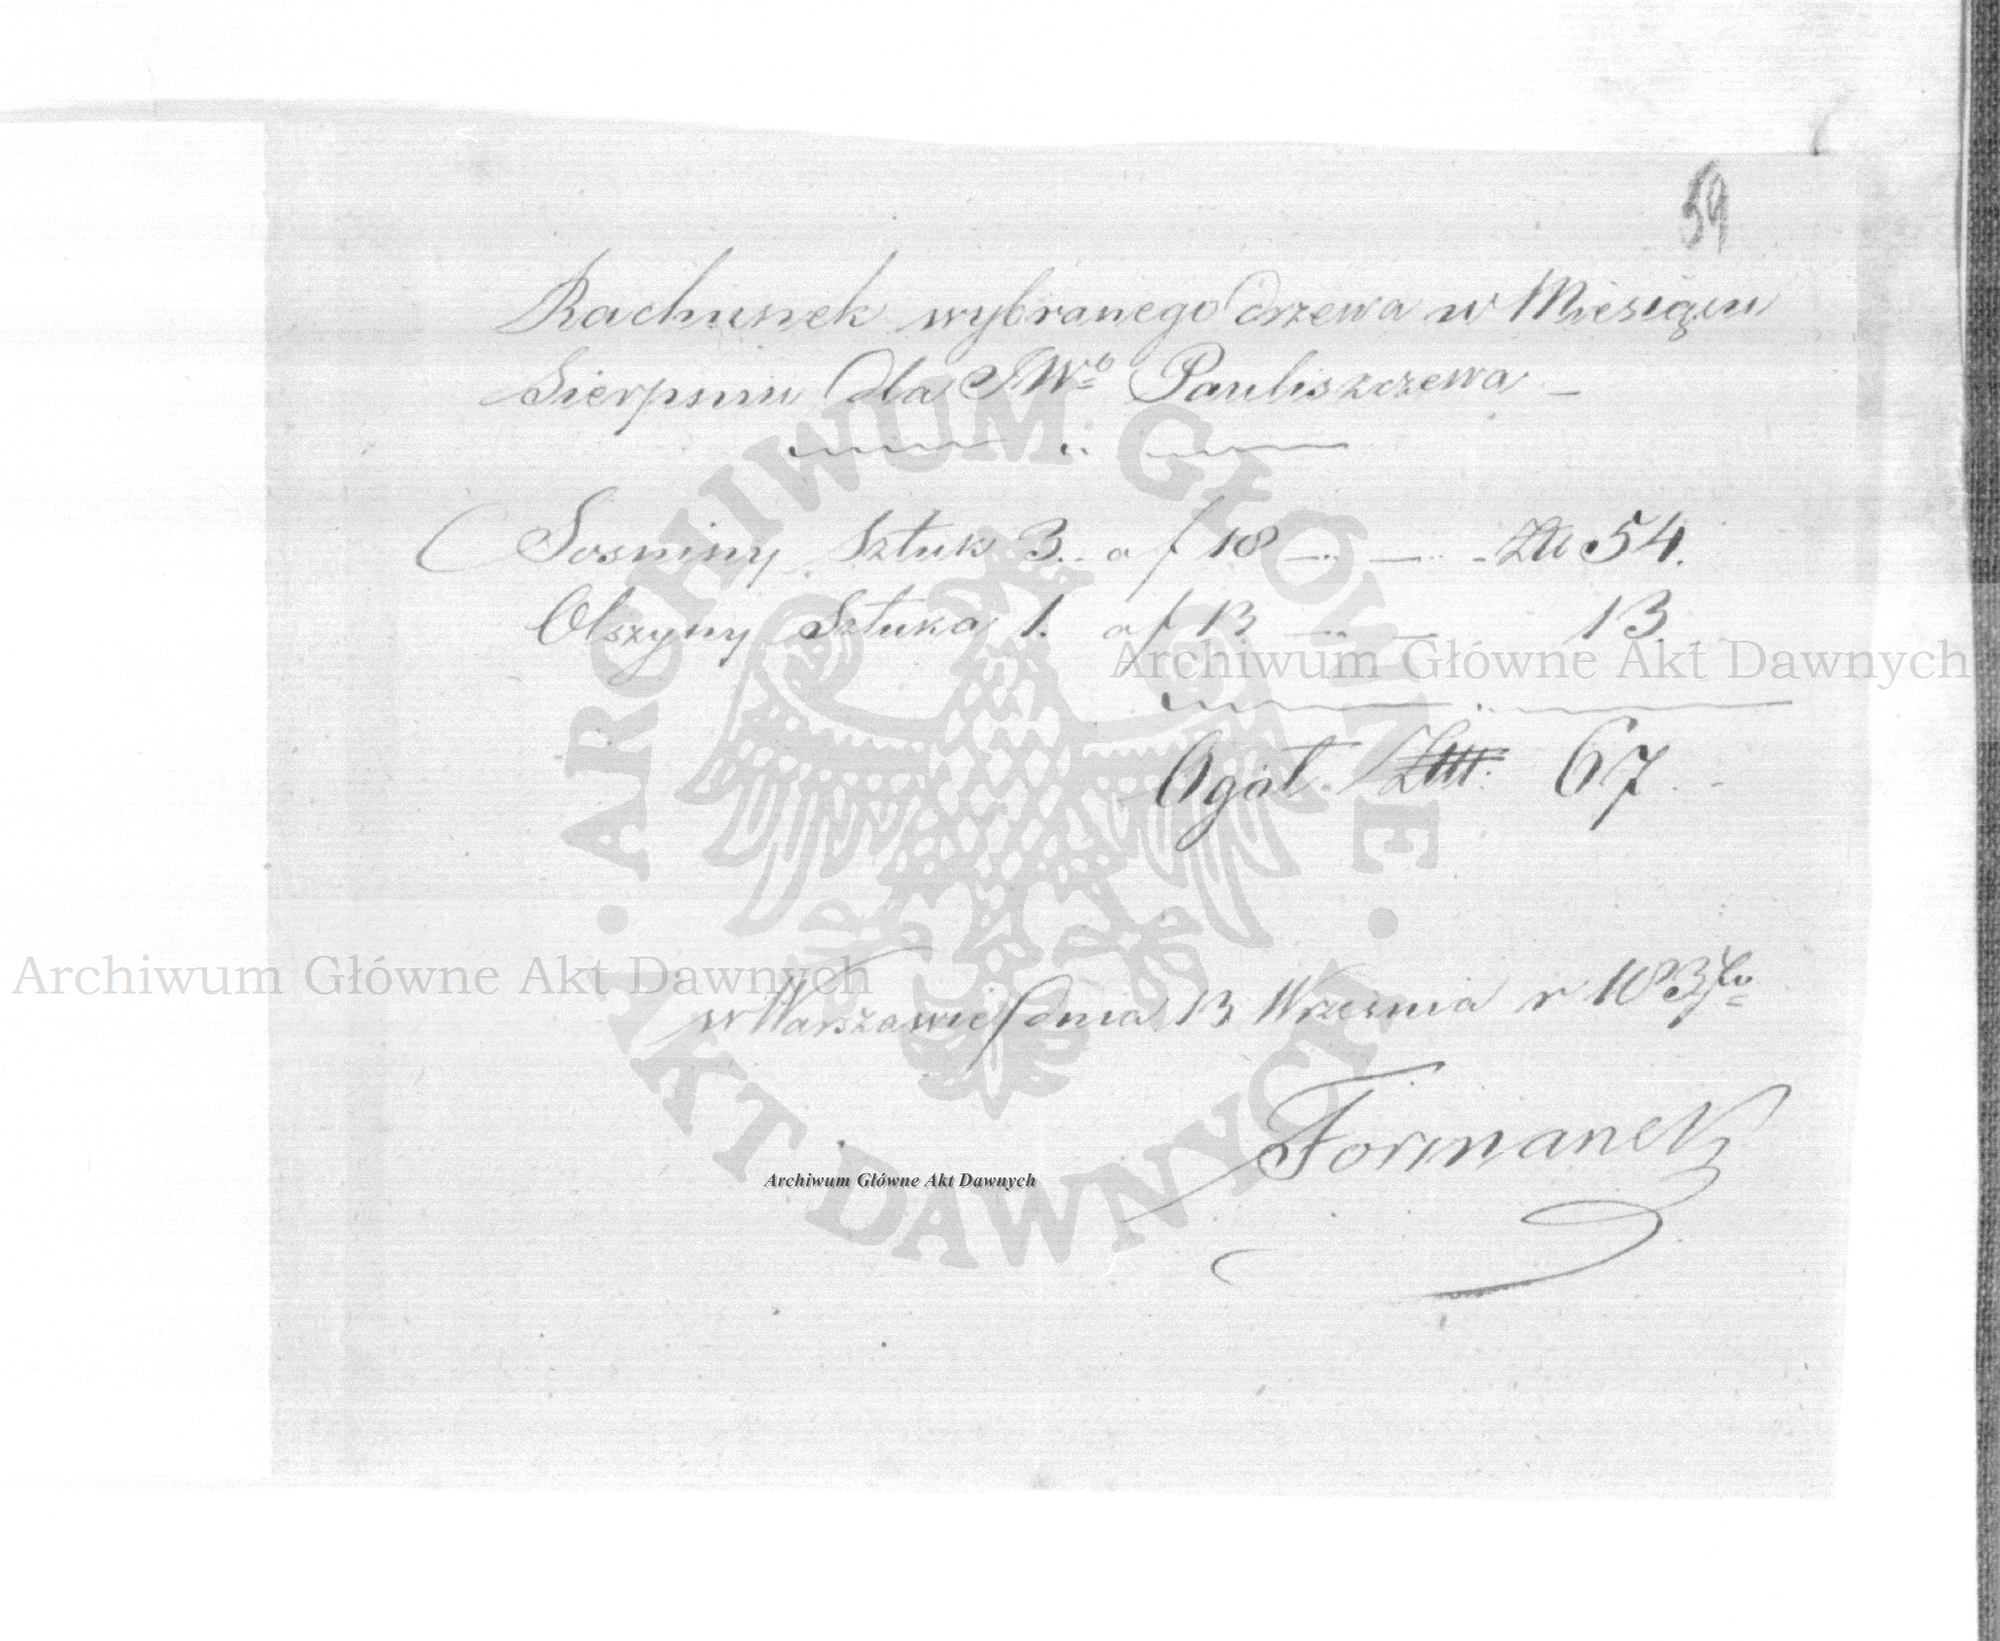 59
Rachunek wybranego drzewa w Miesiącu
Sierpniu dla JWo Pauliszczewa –
Sosniny Sztuk 3. a f 18 — — Złł 54.
Olszyny Sztuka 1. a f 13 — — 13
Archiwum Główne Akt Dawnych
Ogół. Złłł. 67
ARCHIWUM GŁÓWNE · AKT DAWNYCH ·
Archiwum Główne Akt Dawnych
w Warszawie dnia 13 Wrzesnia r 183
Archiwum Główne Akt Dawnych
Formanek